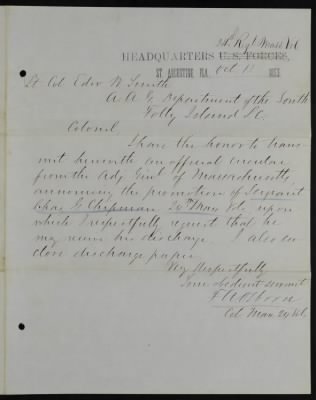 24th Regt Mass Vol
HEADQUARTERS U. S. FORCES,
ST. AUGUSTINE, FLA., Oct 1863.
Lt Col Edw W Smith
A. A. G. Department of the South
Folly Island S.C.
Colonel,
I have the honor to trans-
mit herewith an official circular
from the Adj Genl of Massachusetts,
announcing the promotion of Sergeant
Chas G. Chipman Mass Vols upon
which I respectfully request that he
may receive his discharge. I also en
close discharge papers
Very Respectfully
Your obedient servant
F A Osborn
Col Mass 24